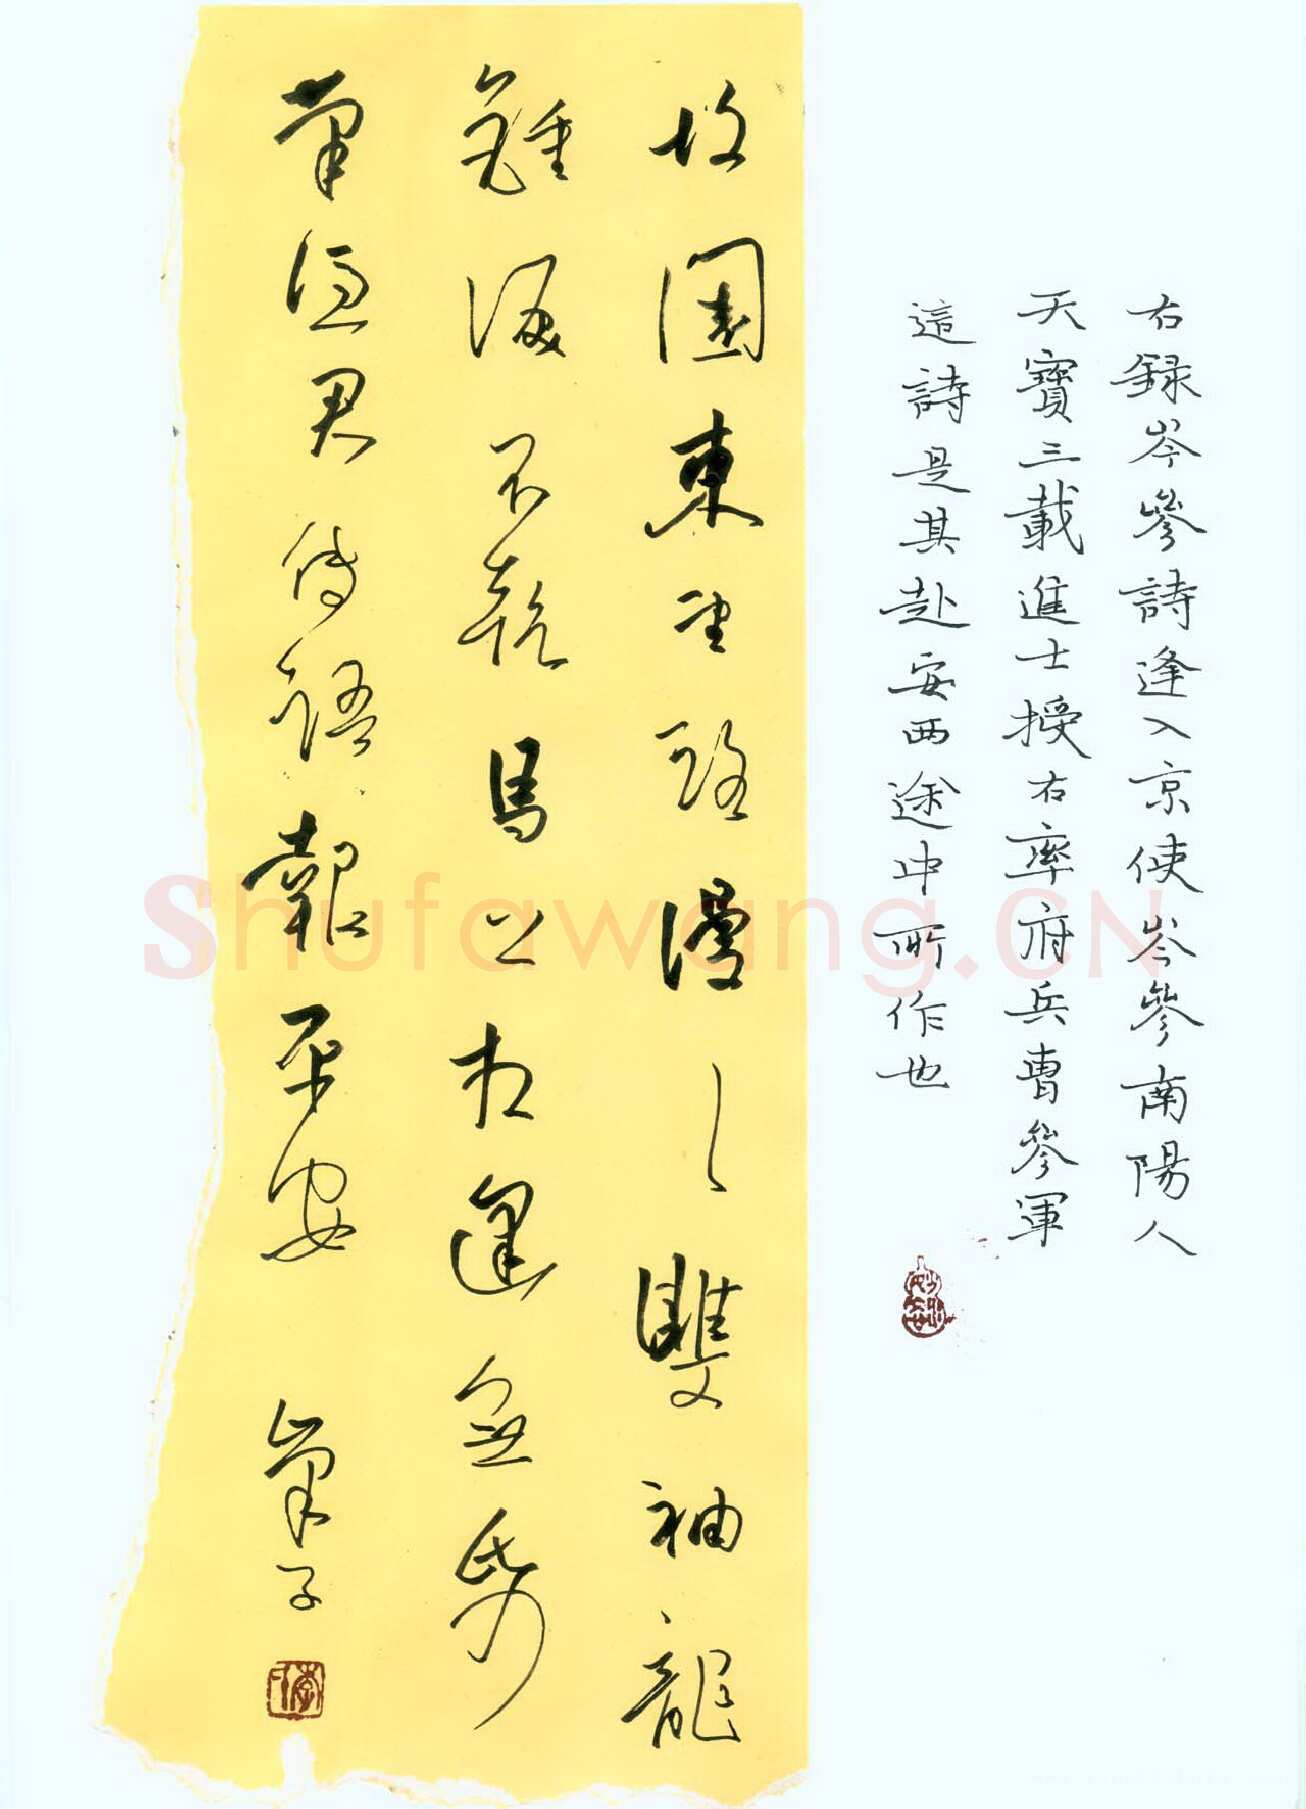 右録岑參詩逢入京使岑參南陽人
天寶三載進士授右率府兵曹參軍
這詩是其赴安西途中所作也
故園東望路漫々雙袖龍
鍾淚不乾馬上相逢無帋
筆憑君傳語報平安
Shufawang.CN